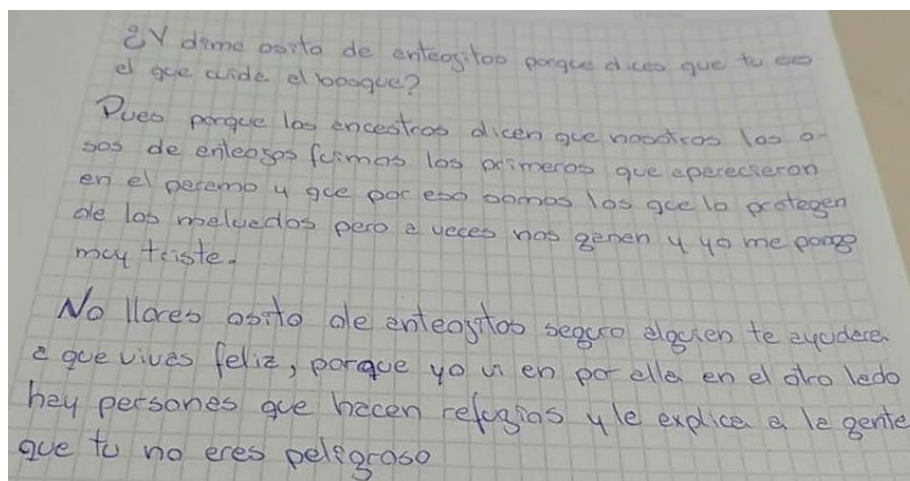 ¿Y dime osito de anteojitos porque dices que tu eres
el que cuida el bosque?
Pues porque los ancestros dicen que nosotros los o-
sos de anteojos fuimos los primeros que aparecieron
en el paramo y que por eso somos los que lo protegen
de los malvados pero a veces nos ganan y yo me pongo
muy triste.
No llores osito de anteojitos seguro alguien te ayudara
a que vivas feliz, porque yo vi en por alla en el otro lado
hay personas que hacen refugios y le explica a la gente
que tu no eres peligroso